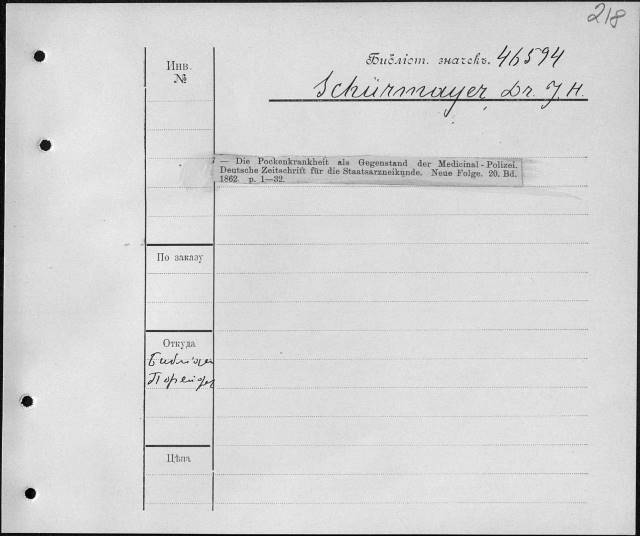 218
Библіот. значекъ. 46594
Schürmayer, Dr. J. H.
Инв.
№
— Die Pockenkrankheit als Gegenstand der Medicinal-Polizei.
Deutsche Zeitschrift für die Staatsarzneikunde. Neue Folge. 20. Bd.
1862. p. 1—32.
По заказу
Откуда
Цѣна